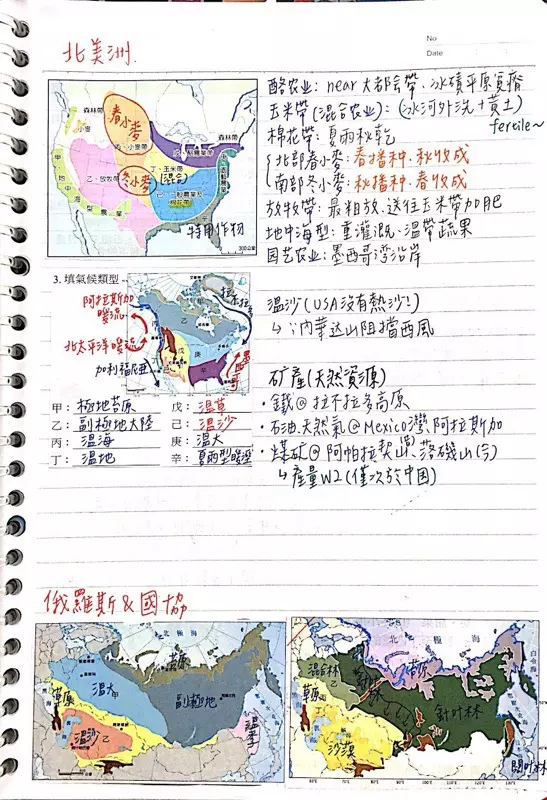 No
Date
北美洲
酪农业: near 大都会帶、冰磧平原貧瘠
玉米帶(混合农业): (冰河外洗+黃土)
fertile~
棉花帶: 夏雨秋乾
北部春小麥: 春播种.秋收成
南部冬小麥: 秋播种.春收成
放牧帶: 最粗放.送往玉米帶加肥
地中海型: 重灌溉.溫帶蔬果
园艺农业: 墨西哥湾沿岸
森林帶
春小麥
森林帶
小麥
丙、小麥帶
乙、放牧帶
丁、玉米帶
(混合)
冬小麥
甲、地中海型農業
特用作物
300公里
3. 填氣候類型
阿拉斯加
暖流
北太平洋暖流
加利福尼亞
甲: 極地苔原
戊: 溫草
乙: 副極地大陸
己: 溫沙
丙: 溫海
庚: 溫大
丁: 溫地
辛: 夏雨型暖溼
溫沙(USA沒有熱沙!)
↳ ∵內華达山阻擋西風
矿产(天然資源)
·鐵@拉不拉多高原
·石油.天然氣@Mexico灣、阿拉斯加
·煤矿@阿帕拉契山、落磯山(今)
↳產量W2(僅次於中国)
俄羅斯&國協
北極海
溫大
甲
副極地
草原
溫沙
乙
北極海
白令海
混合林
乙
苔原
草原
丁
針叶林
沙漠
闊叶林